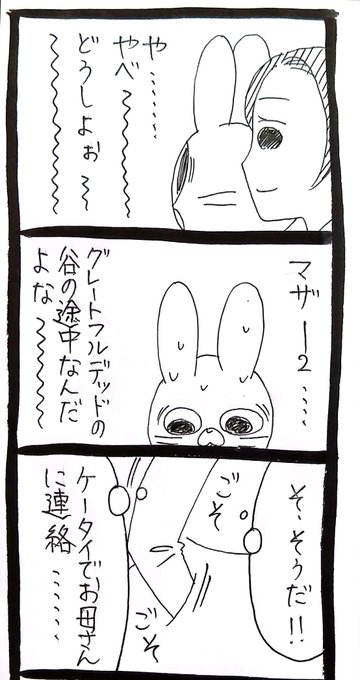 や………
やべ〜〜〜〜
どうしよぉ〜〜〜〜
マザー2……
グレートフルデッドの
谷の途中なんだ
よな〜〜〜〜
そ、そうだ!!
ごそ
ごそ
ケータイでお母さん
に連絡……